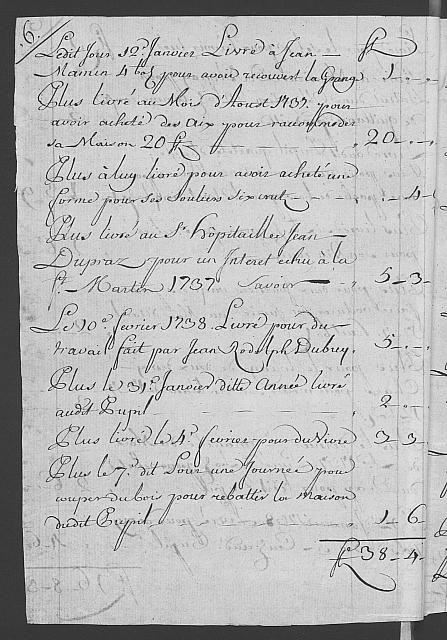 6.
Ledit Jour 12e. Janvier Livré à Jean — ff
Mamin 4 bs pour avoir recouvert la Grange 1 -
Plus livré au Mois d'Aoust 1737 pour
avoir acheté des aix pour racommoder
sa Maison 20 ff - 20 -
Plus à luy livré pour avoir acheté une
forme pour ses souliers six crut - - 4
Plus livré au Sr. hôpitailler Jean —
Dupraz pour un Interet echu à la
St. Martin 1737 Savoir — 5 - 3
Le 10e. fevrier 1738 Livré pour du
travail fait par Jean Rodolph Dubuy 5 -
Plus le 31e. Janvier ditte Année livré
audit Pupil 2 -
Plus livré le 4e. fevrier pour du vivre 3 - 3
Plus le 7e. dit pour une Journée pour
couper du bois pour rebattre la maison
dudit Pupil 1 - 6
ff 38 - 4